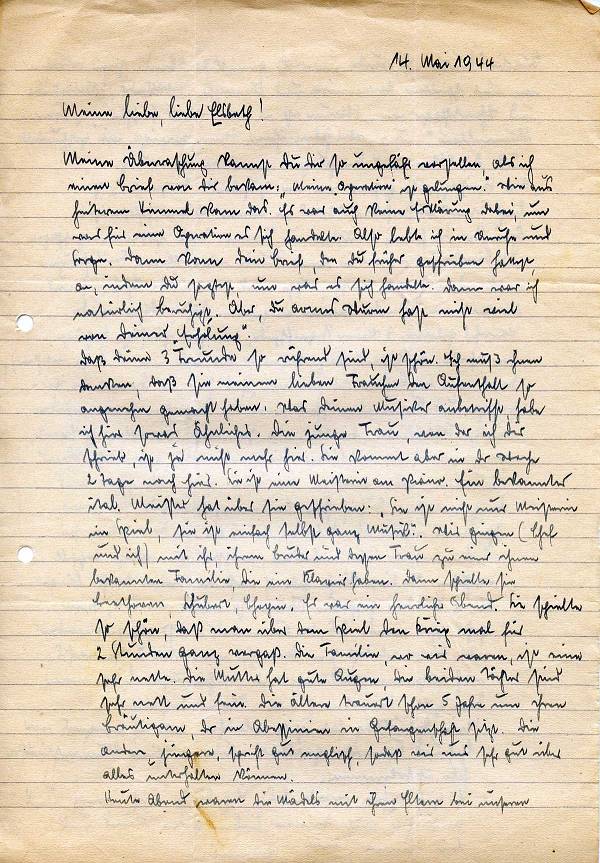 14. Mai 1944
Meine liebe, liebe Elsbeth!
Meine Überraschung kannst Du Dir so ungefähr vorstellen, als ich
einen Brief von Dir bekam: "Meine Operation ist gelungen." Wie aus
heiterem Himmel kam das. Es war auch keine Erklärung dabei, um
was für eine Operation es sich handelte. Also lebte ich in Unruhe und
Sorge, dann kam Dein Brief, den Du früher geschrieben hattest,
an, indem Du sagtest, um was es sich handele. Dann war ich
natürlich beruhigt. Aber, Du armes Wurm hast nicht viel
von Deiner "Erholung".
Daß Deine 3 Freunde so rührend sind, ist schön. Ich muß ihnen
danken, daß sie meinem lieben Frauchen den Aufenthalt so
angenehm gemacht haben. Was Deinen Musiker anbetrifft, habe
ich hier etwas Ähnliches. Die junge Frau, von der ich Dir
schrieb, ist ja nicht mehr hier. Sie kommt aber in der Woche
2 Tage nach hier. Sie ist eine Meisterin am Piano. Ein bekannter
ital. Meister hat über sie geschrieben: "Sie ist nicht nur Meisterin
im Spiel, sie ist einfach selbst ganz Musik". Wir gingen (Chef
und ich) mit ihr, ihrem Bruder und dessen Frau zu einer ihnen
bekannten Familie, die ein Klavier haben. Dann spielte sie
Beethoven, Schubert, Chopin. Es war ein herrlicher Abend. Sie spielte
so schön, daß man über dem Spiel den Krieg mal für
2 Stunden ganz vergaß. Die Familie, wo wir waren, ist eine
sehr nette. Die Mutter hat gute Augen, die beiden Töchter sind
sehr nett und frei. Die ältere trauert schon 5 Jahre um ihren
Bräutigam, der in Abessinien in Gefangenschaft sitzt. Die
andere, jüngere, spricht gut englisch, sodaß wir uns sehr gut über
alles unterhalten können.
Heute Abend waren die Mädels mit ihren Eltern bei unseren